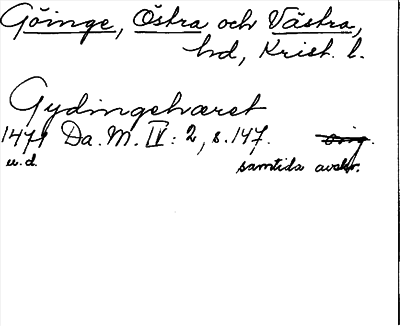 Göinge, Östra och Västra,
hd, Krist. l.
Gydingehæret
1471 Da. M. IV: 2, s. 147. orig.
u. d. samtida avskr.